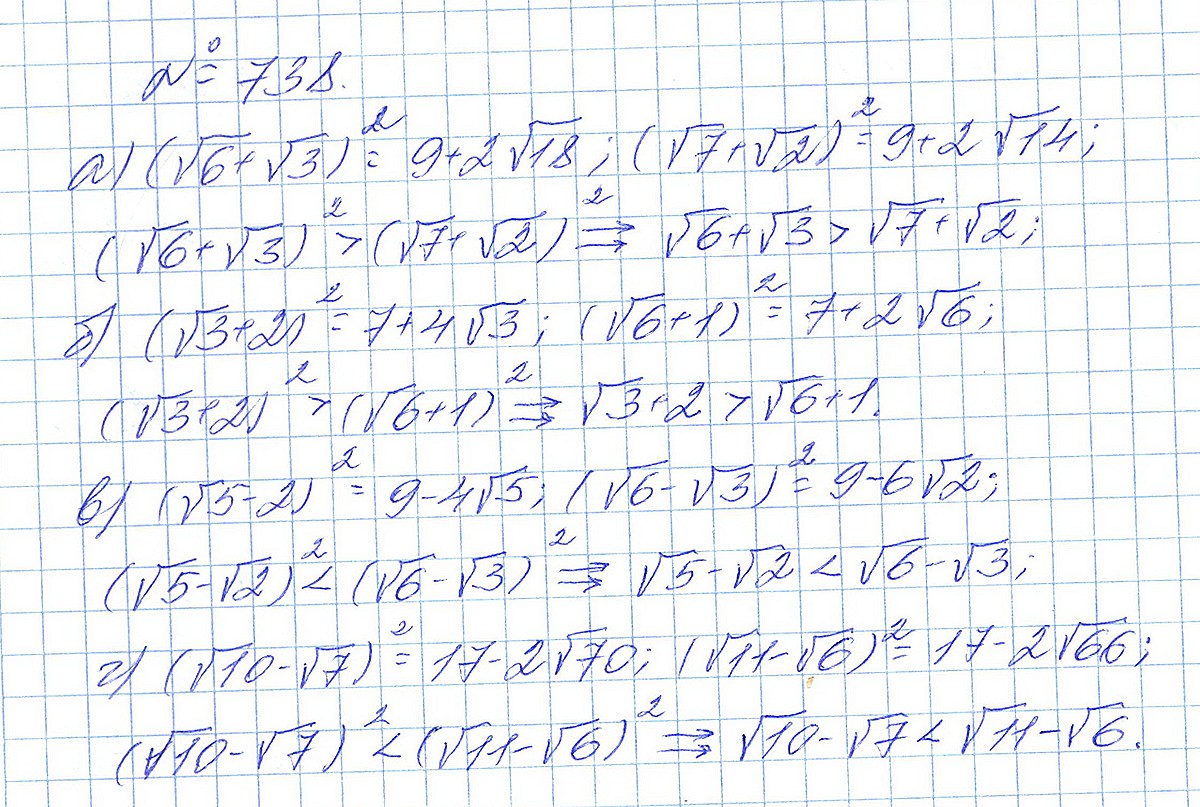 № 738.
а) (√6+√3)² = 9+2√18; (√7+√2)² = 9+2√14;
(√6+√3)² > (√7+√2)² ⇒ √6+√3 > √7+√2;
б) (√3+2)² = 7+4√3; (√6+1)² = 7+2√6;
(√3+2)² > (√6+1)² ⇒ √3+2 > √6+1.
в) (√5-2)² = 9-4√5; (√6-√3)² = 9-6√2;
(√5-√2)² < (√6-√3)² ⇒ √5-√2 < √6-√3;
г) (√10-√7)² = 17-2√70; (√11-√6)² = 17-2√66;
(√10-√7)² < (√11-√6)² ⇒ √10-√7 < √11-√6.